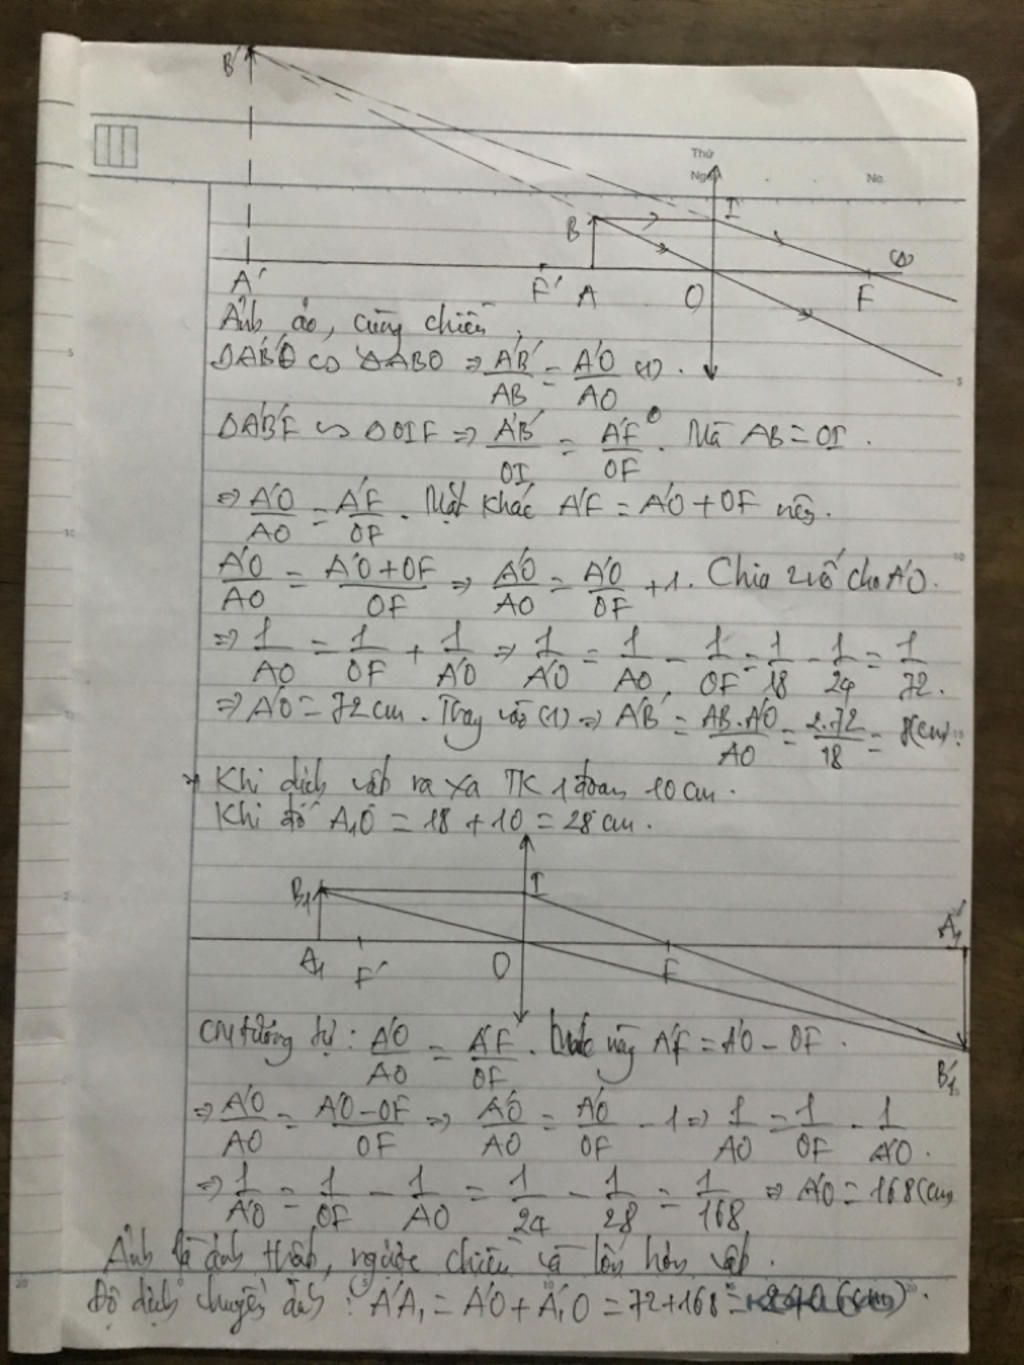 B'
Thứ
Ngày
No.
B
I
Δ
A'
F'
A
O
F
Ảnh ảo, cùng chiều.
ΔA'B'O ∽ ΔABO ⇒ A'B'/AB = A'O/AO (1).
ΔA'B'F ∽ ΔOIF ⇒ A'B'/OI = A'F/OF. Mà AB = OI.
⇒ A'O/AO = A'F/OF. Mặt khác A'F = A'O + OF nên.
A'O/AO = A'O+OF/OF ⇒ A'O/AO = A'O/OF + 1. Chia 2 vế cho A'O.
⇒ 1/AO = 1/OF + 1/A'O ⇒ 1/A'O = 1/AO - 1/OF = 1/18 - 1/24 = 1/72.
⇒ A'O = 72 cm. Thay vào (1) ⇒ A'B' = AB.A'O/AO = 2.72/18 = 8(cm).
Khi dịch vật ra xa TK 1 đoạn 10 cm.
Khi đó A₁O = 18 + 10 = 28 cm.
B₁
I
A₁'
A₁
F'
O
F
B₁'
CM tương tự: A'O/AO = A'F/OF. này A'F = A'O - OF.
⇒ A'O/AO = A'O-OF/OF ⇒ A'O/AO = A'O/OF - 1 ⇒ 1/AO = 1/OF - 1/A'O.
⇒ 1/A'O = 1/OF - 1/AO = 1/24 - 1/28 = 1/168 ⇒ A'O = 168(cm)
Ảnh là ảnh thật, ngược chiều và lớn hơn vật.
Độ dịch chuyển ảnh: A'A₁' = A'O + A₁'O = 72+168 = 240 (cm).